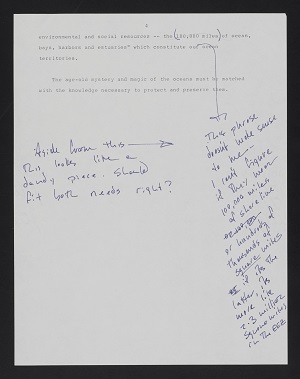 4
environmental and social resources -- the 100,000 miles of ocean,
bays, harbors and estuaries" which constitute our ocean
territories.
The age-old mystery and magic of the oceans must be matched
with the knowledge necessary to protect and preserve them.
Aside from this
This looks like a
dandy piece. Should
fit both needs right?
This phrase
doesn't make sense
to me --
I can't figure
if they mean
100,000 miles
of shoreline
or hundreds of
thousands of
square miles
if its the
latter, its
more like
2-3 million
square miles
in the EEZ